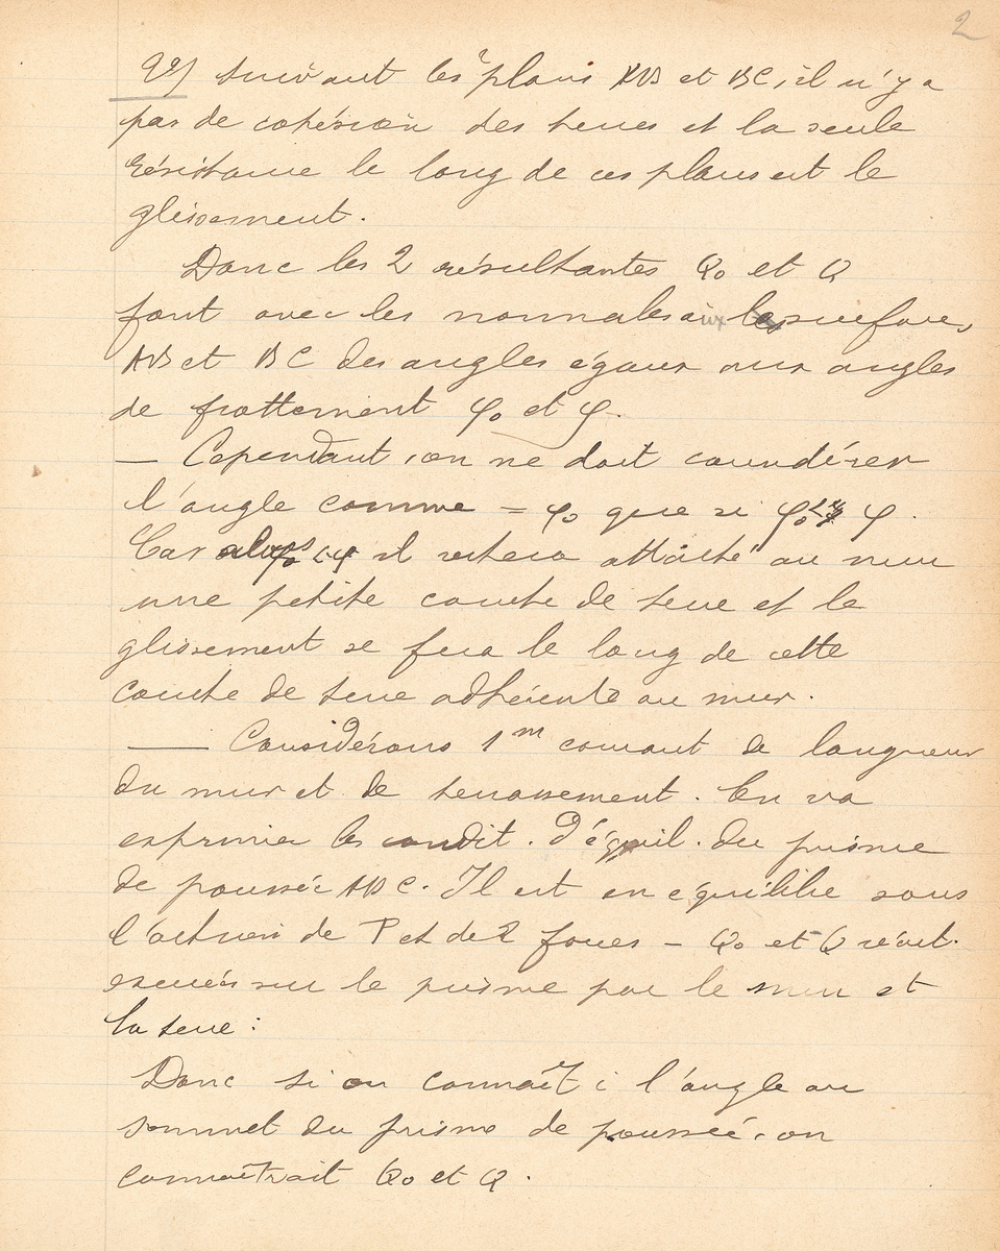 2
2°) suivant les 2 plans AB et BC, il n'y a
pas de cohésion des terres et la seule
résistance le long de ces plans est le
glissement.
Donc les 2 résultantes Q₀ et Q
font avec les normales aux surfaces
AB et BC des angles égaux aux angles
de frottement φ₀ et φ.
— Cependant, on ne doit considérer
l'angle comme = φ₀ que si φ₀ < φ.
Car il restera attaché au mur
une petite couche de terre et le
glissement se fera le long de cette
couche de terre adhérente au mur.
— Considérons 1ᵐ courant de longueur
du mur et de terrassement. On va
exprimer les condit. d'équil. du prisme
de poussée ABC. Il est en équilibre sous
l'action de P et de 2 forces — Q₀ et Q réact.
exercées sur le prisme par le mur et
la terre :
Donc si on connaît i l'angle au
sommet du prisme de poussée, on
connaîtrait Q₀ et Q.